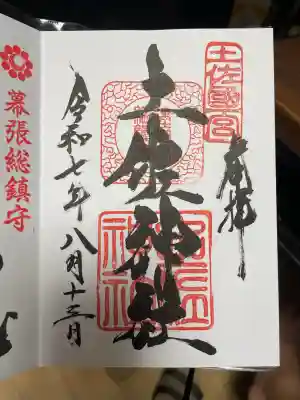 土佐國一宮
奉拝
土佐神社
令和七年八月十三日
幕張総鎮守